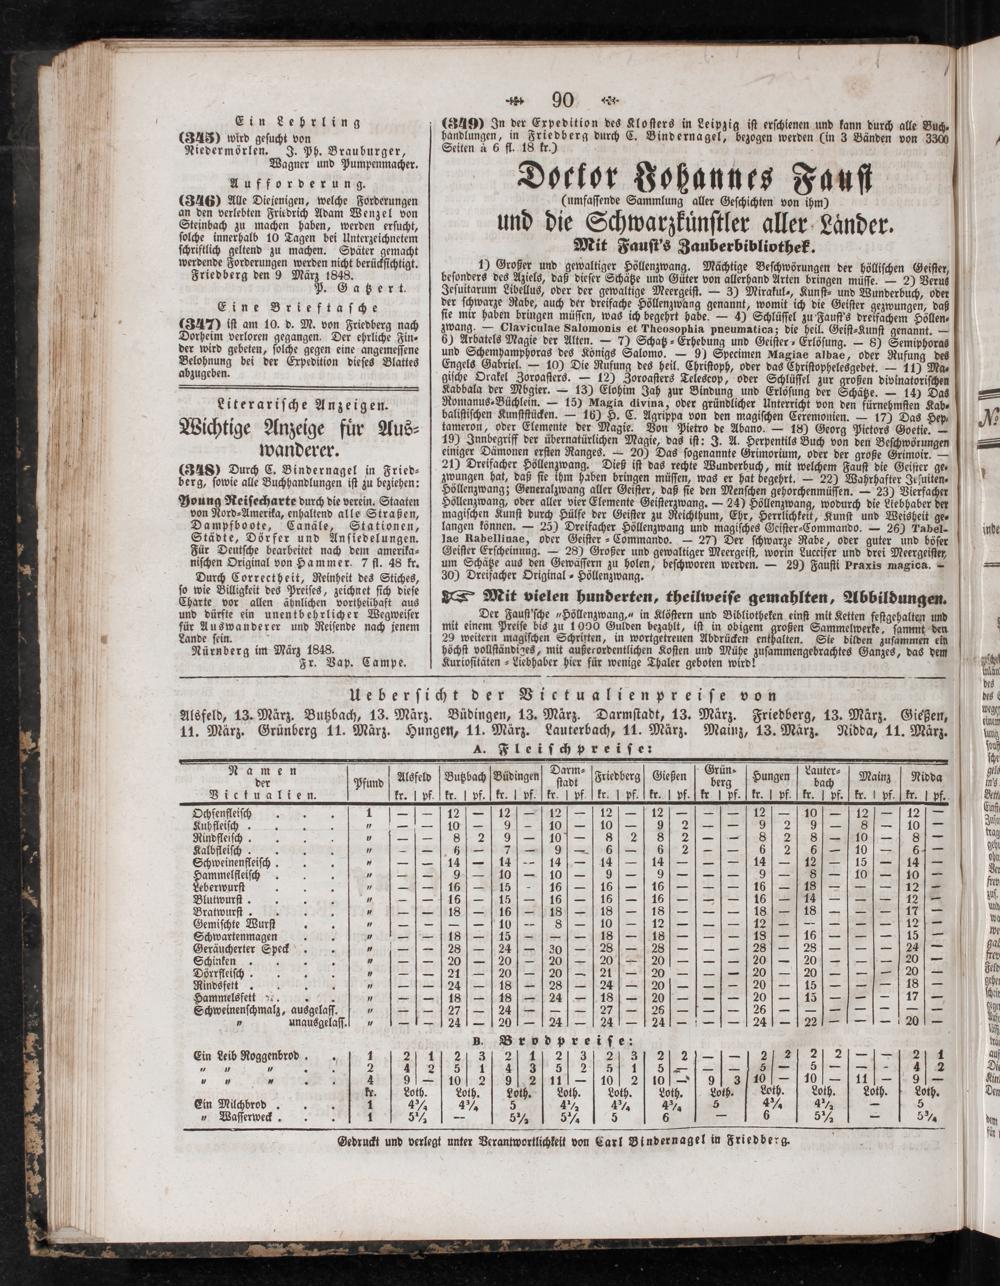 90
Ein Lehrling
(345) wird gesucht von
Niedermörlen. J. Ph. Brauburger,
Wagner und Pumpenmacher.
Aufforderung.
(346) Alle Diejenigen, welche Forderungen
an den verlebten Friedrich Adam Wenzel von
Steinbach zu machen haben, werden ersucht,
solche innerhalb 10 Tagen bei Unterzeichnetem
schriftlich geltend zu machen. Später gemacht
werdende Forderungen werden nicht berücksichtigt.
Friedberg den 9 März 1848.
P. Gatzert.
Eine Brieftasche
(347) ist am 10. d. M. von Friedberg nach
Dorheim verloren gegangen. Der ehrliche Fin-
der wird gebeten, solche gegen eine angemessene
Belohnung bei der Expedition dieses Blattes
abzugeben.
Literarische Anzeigen.
Wichtige Anzeige für Aus-
wanderer.
(348) Durch C. Bindernagel in Fried-
berg, sowie alle Buchhandlungen ist zu beziehen:
Young Reisecharte durch die verein. Staaten
von Nord-Amerika, enhaltend alle Straßen,
Dampfboote, Canäle, Stationen,
Städte, Dörfer und Ansiedelungen.
Für Deutsche bearbeitet nach dem amerika-
nischen Original von Hammer. 7 fl. 48 kr.
Durch Correctheit, Reinheit des Stiches,
so wie Billigkeit des Preises, zeichnet sich diese
Charte vor allen ähnlichen vortheilhaft aus
und dürfte ein unentbehrlicher Wegweiser
für Auswanderer und Reisende nach jenem
Lande sein.
Nürnberg im März 1848.
Fr. Bap. Campe.
(349) In der Expedition des Klosters in Leipzig ist erschienen und kann durch alle Buch-
handlungen, in Friedberg durch C. Bindernagel, bezogen werden (in 3 Bänden von 3300
Seiten à 6 fl. 18 kr.)
Doctor Johannes Faust
(umfassende Sammlung aller Geschichten von ihm)
und die Schwarzkünstler aller Länder.
Mit Faust's Zauberbibliothek.
1) Großer und gewaltiger Höllenzwang. Mächtige Beschwörungen der höllischen Geister,
besonders des Aziels, daß dieser Schätze und Güter von allerhand Arten bringen müsse. — 2) Verus
Jesuitarum Libellus, oder der gewaltige Meergeist. — 3) Mirakul-, Kunst- und Wunderbuch, oder
der schwarze Rabe, auch der dreifache Höllenzwang genannt, womit ich die Geister gezwungen, daß
sie mir haben bringen müssen, was ich begehrt habe. — 4) Schlüssel zu Faust's dreifachem Höllen-
zwang. — Claviculae Salomonis et Theosophia pneumatica; die heil. Geist-Kunst genannt. —
6) Arbatels Magie der Alten. — 7) Schatz-Erhebung und Geister-Erlösung. — 8) Semiphoras
und Schemhamphoras des Königs Salomo. — 9) Specimen Magiae albae, oder Rufung des
Engels Gabriel. — 10) Die Rufung des heil. Christoph, oder das Christophelesgebet. — 11) Ma-
gische Orakel Zoroasters. — 12) Zoroasters Telescop, oder Schlüssel zur großen divinatorischen
Kabbala der Mbgier. — 13) Elohim Jah zur Bindung und Erlösung der Schätze. — 14) Das
Romanus-Büchlein. — 15) Magia divina, oder gründlicher Unterricht von den fürnehmsten Kab-
balistischen Kunststücken. — 16) H. C. Agrippa von den magischen Ceremonien. — 17) Das Hep-
tameron, oder Elemente der Magie. Von Pietro de Abano. — 18) Georg Pictors Goetie. —
19) Innbegriff der übernatürlichen Magie, das ist: J. A. Herpentils Buch von den Beschwörungen
einiger Dämonen ersten Ranges. — 20) Das sogenannte Grimorium, oder der große Grimoir. —
21) Dreifacher Höllenzwang. Dieß ist das rechte Wunderbuch, mit welchem Faust die Geister ge-
zwungen hat, daß sie ihm haben bringen müssen, was er hat begehrt. — 22) Wahrhafter Jesuiten-
Höllenzwang; Generalzwang aller Geister, daß sie den Menschen gehorchenmüssen. — 23) Vierfacher
Höllenzwang, oder aller vier Elemente Geisterzwang. — 24) Höllenzwang, wodurch die Liebhaber der
magischen Kunst durch Hülfe der Geister zu Reichthum, Ehr, Herrlichkeit, Kunst und Weisheit ge-
langen können. — 25) Dreifacher Höllenzwang und magisches Geister-Commando. — 26) Tabel-
lae Rabellinae, oder Geister-Commando. — 27) Der schwarze Rabe, oder guter und böser
Geister Erscheinung. — 28) Großer und gewaltiger Meergeist, worin Luccifer und drei Meergeister,
um Schätze aus den Gewässern zu holen, beschworen werden. — 29) Fausti Praxis magica. —
30) Dreifacher Original-Höllenzwang.
☞ Mit vielen hunderten, theilweise gemahlten, Abbildungen.
Der Faust'sche „Höllenzwang," in Klöstern und Bibliotheken einst mit Ketten festgehalten und
mit einem Preise bis zu 1000 Gulden bezahlt, ist in obigem großen Sammelwerke, sammt den
29 weitern magischen Schriften, in wortgetreuen Abdrücken enthalten. Sie bilden zusammen ein
höchst vollständiges, mit außerordentlichen Kosten und Mühe zusammengebrachtes Ganzes, das dem
Kuriositäten-Liebhaber hier für wenige Thaler geboten wird!
Uebersicht der Victualienpreise von
Alsfeld, 13. März. Butzbach, 13. März. Büdingen, 13. März. Darmstadt, 13. März. Friedberg, 13. März. Gießen,
11. März. Grünberg 11. März. Hungen, 11. März. Lauterbach, 11. März. Mainz, 13. März. Nidda, 11. März.
A. Fleischpreise:
Namen der Victualien. | Pfund | Alsfeld | Butzbach | Büdingen | Darm-stadt | Friedberg | Gießen | Grün-berg | Hungen | Lauter-bach | Mainz | Nidda
kr. | pf. kr. | pf. kr. | pf. kr. | pf. kr. | pf. kr. | pf. kr | pf. kr. | pf. kr. | pf. kr. | pf. kr. | pf.
Ochsenfleisch . . . . 1 — — 12 — 12 — 12 — 12 — 12 — — — 12 — 10 — 12 — 12 —
Kuhfleisch . . . . " — — 10 — 9 — 10 — 10 — 9 2 — — 9 2 9 — 8 — 10 —
Rindfleisch . . . . " — — 8 2 9 — 10 — 8 2 8 2 — — 8 2 8 — 10 — 8 —
Kalbfleisch . . . . " — — 6 — 7 — 9 — 6 — 6 2 — — 6 2 6 — 10 — 6 —
Schweinenfleisch . . . " — — 14 — 14 — 14 — 14 — 14 — — — 14 — 12 — 15 — 14 —
Hammelfleisch . . . " — — 9 — 10 — 10 — 9 — 9 — — — 9 — 8 — 10 — 10 —
Leberwurst . . . " — — 16 — 15 — 16 — 16 — 16 — — — 16 — 18 — — — 12 —
Blutwurst . . . . " — — 16 — 15 — 16 — 16 — 16 — — — 16 — 14 — — — 12 —
Bratwurst . . . . " — — 18 — 16 — 18 — 18 — 18 — — — 18 — 18 — — — 17 —
Gemischte Wurst . . " — — — — 10 — 8 — 10 — 12 — — — 12 — — — — — 12 —
Schwartenmagen . . " — — 18 — 15 — — — 18 — 18 — — — 18 — 16 — — — 15 —
Geräucherter Speck . . " — — 28 — 24 — 30 — 28 — 28 — — — 28 — 28 — — — 24 —
Schinken . . . . " — — 20 — 20 — 20 — 20 — 20 — — — 20 — 20 — — — 20 —
Dörrfleisch . . . . " — — 21 — 20 — 20 — 21 — 20 — — — 20 — 20 — — — 20 —
Rindsfett . . . . " — — 24 — 18 — 28 — 24 — 20 — — — 20 — 15 — — — 18 —
Hammelsfett . . . " — — 18 — 18 — 24 — 18 — 20 — — — 20 — 15 — — — 17 —
Schweinenschmalz, ausgelass. " — — 27 — 24 — — — 27 — 26 — — — 26 — — — — — — —
" unausgelass. " — — 24 — 20 — 24 — 24 — 24 — — — 24 — 22 — — — 20 —
B. Brodpreise:
Ein Leib Roggenbrod . . 1 2 1 2 3 2 1 2 3 2 3 2 2 — — 2 2 2 2 — — 2 1
" " " . . 2 4 2 5 1 4 3 5 2 5 1 5 — — — 5 — 5 — — — 4 2
" " " . . 4 9 — 10 2 9 2 11 — 10 2 10 — 9 3 10 — 10 — 11 — 9 —
kr. Loth. Loth. Loth. Loth. Loth. Loth. Loth. Loth. Loth. Loth. Loth.
Ein Milchbrod . . . 1 4¾ 4¾ 5 4½ 4¾ 4¾ 5 4¾ 4½ — 5
" Wasserweck . . . 1 5½ — 5½ 5¼ 5 6 — 6 5½ — 5¾
Gedruckt und verlegt unter Verantwortlichkeit von Carl Bindernagel in Friedberg.